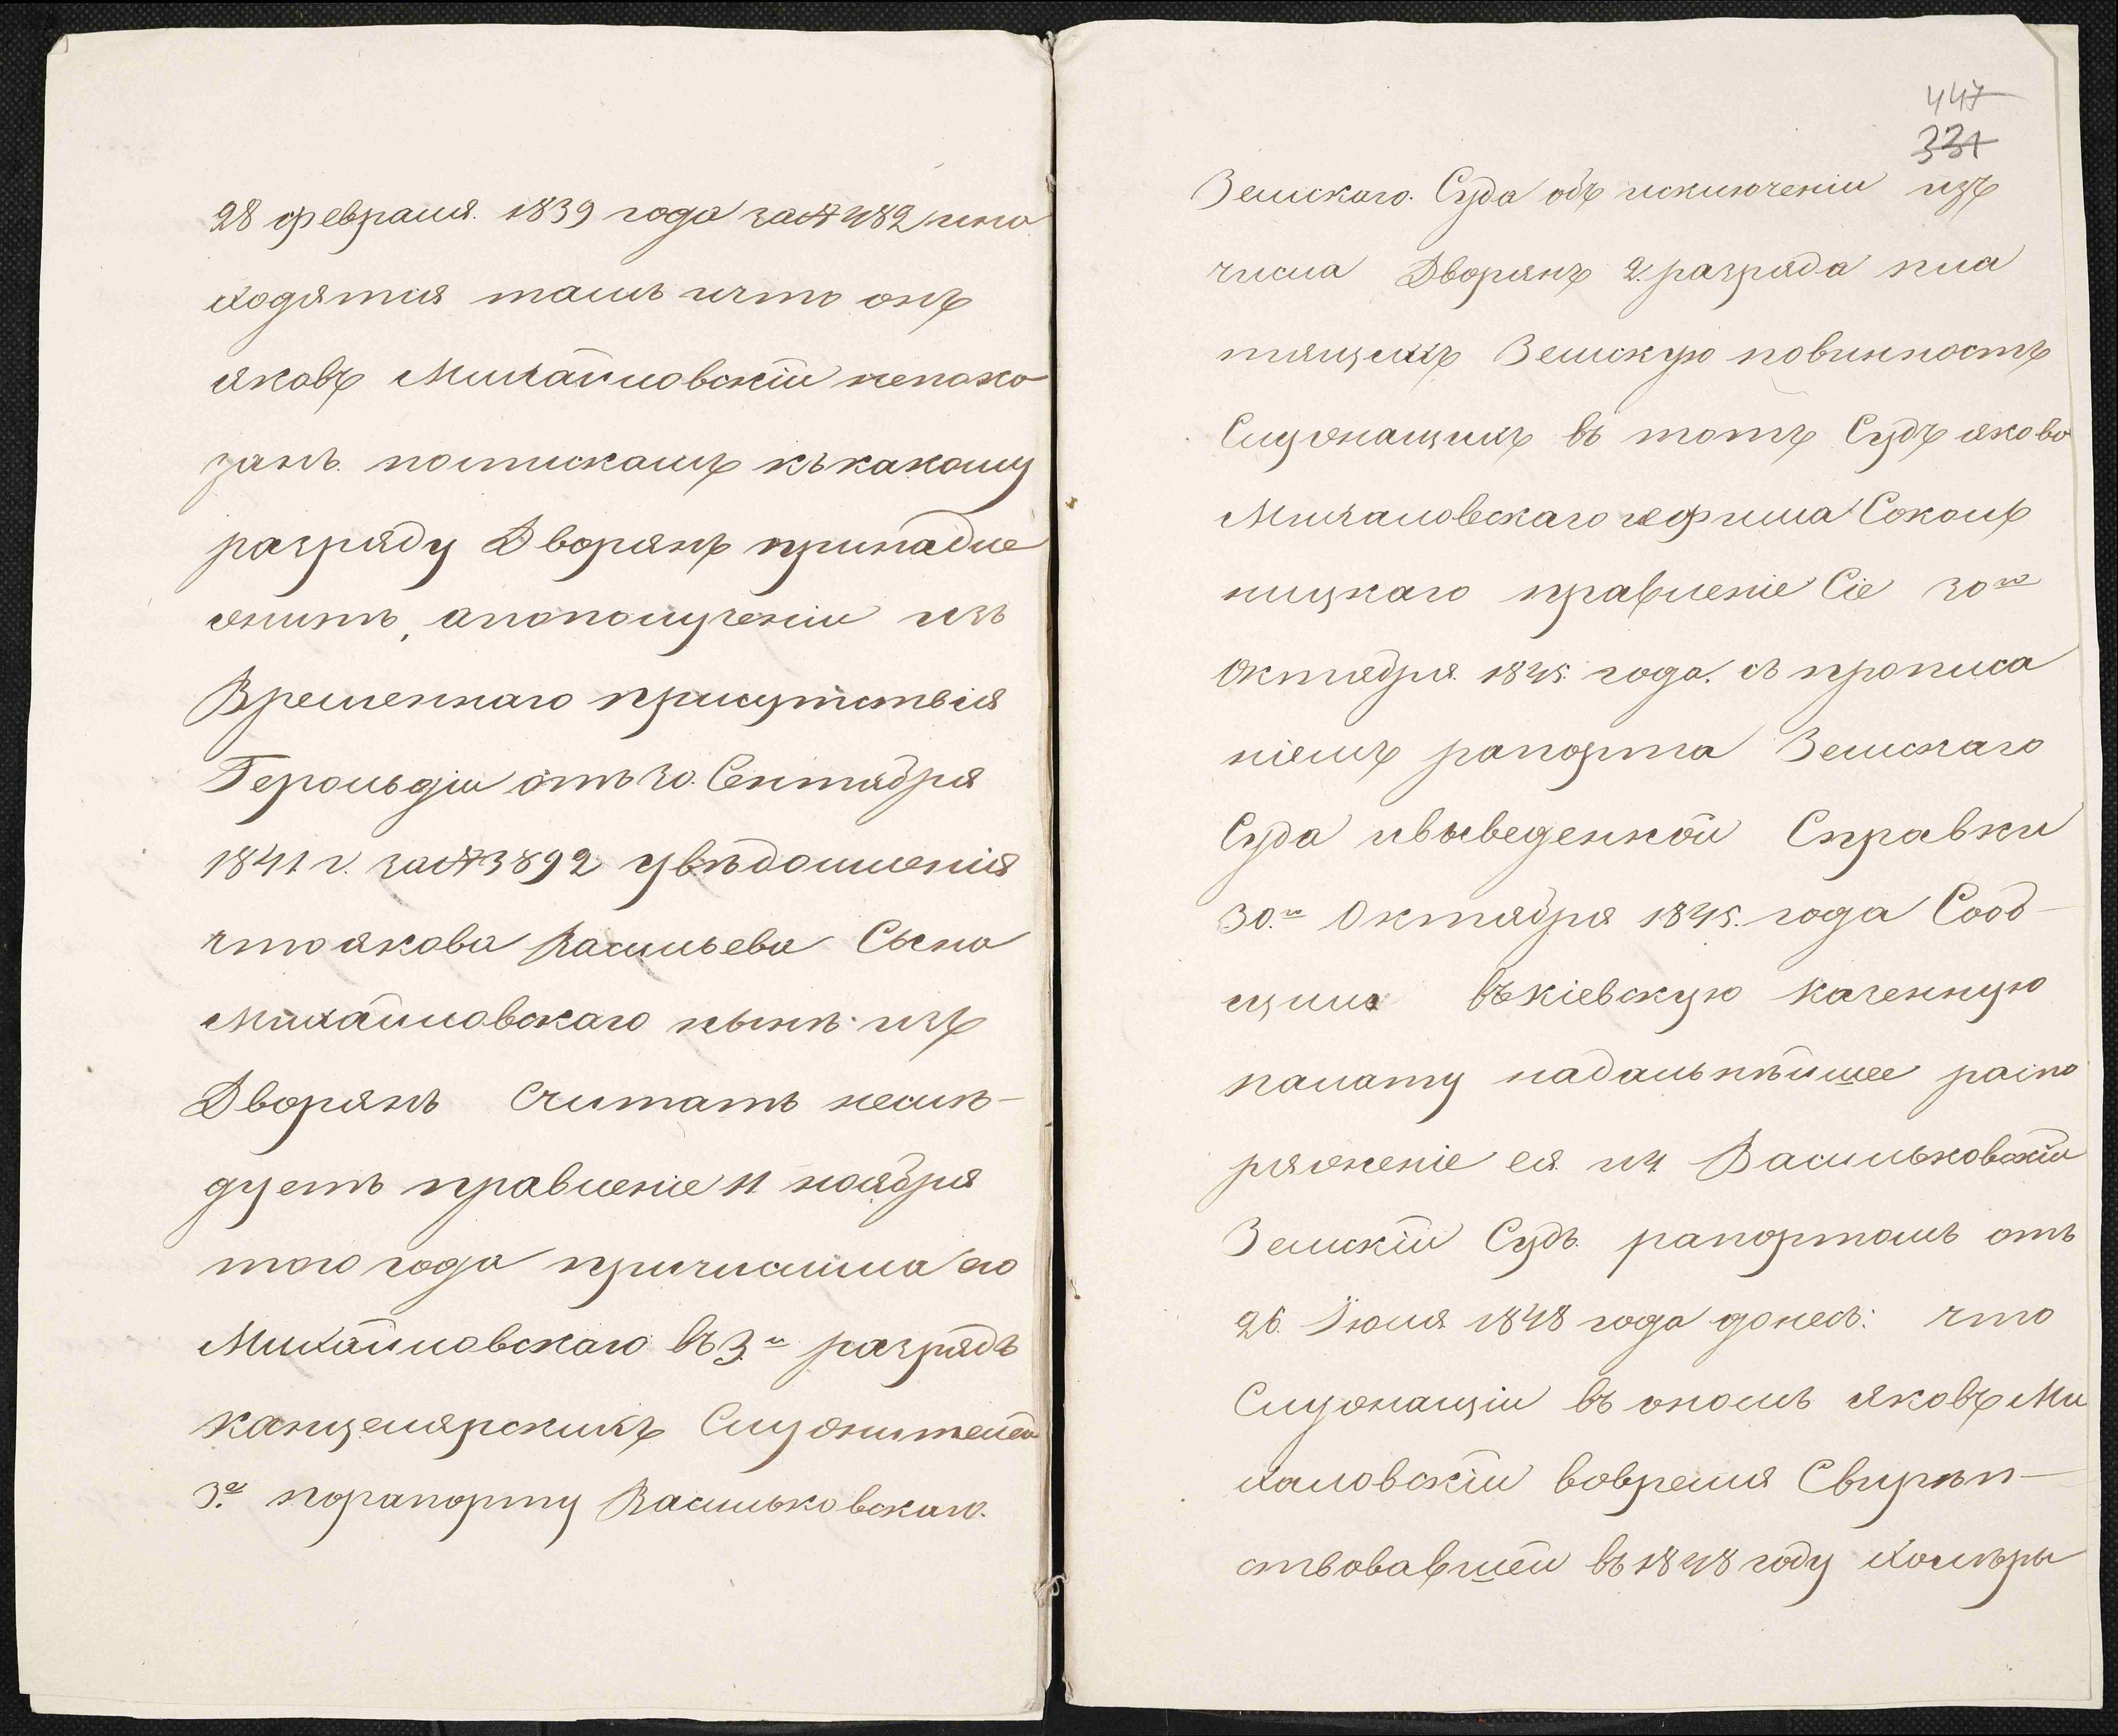 28 февраля. 1839 года за № 482 ина
ходятся тамъ ичто онъ
яковъ Михайловскій непока
занъ. по спискамъ къ какому
разряду Дворянъ принадле
житъ, апополученіи изъ
Временнаго присутствія
Герольдіи отъ 30. Сентября
1841 г. за № 3892 увѣдомленія
что якова Васильева Сына
Михайловскаго нынѣ изъ
Дворянъ Считать неслѣ-
дуетъ правленіе 11 ноября
того года причислила его
Михайловскаго въ 3.й разрядъ
канцелярскихъ Служителей
3.е порапорту Васильковскаго.
447
331
Земскаго. Суда объ исключеніи изъ
числа Дворянъ 2. разряда пла
тящихъ Земскую повинность
Служащихъ въ томъ Судѣ якова
Михаловскаго иефима Сокол
ницкаго правленіе Сіе 30го
Октября. 1845. года. съ прописа
ніемъ рапорта Земскаго
Суда ивыведенной Справки
30.го Октября 1845. года Сооб-
щила въкіевскую казенную
палату надальнѣйшее распо
ряженіе ея. и 4. Васильковскій
Земскій Судъ. рапортомъ отъ
26. Іюля 1848 года донесъ: что
Служащій въ ономъ яковъ Ми
халовскій вовремя Свирѣп-
ствовавшей въ 1848 году холеры